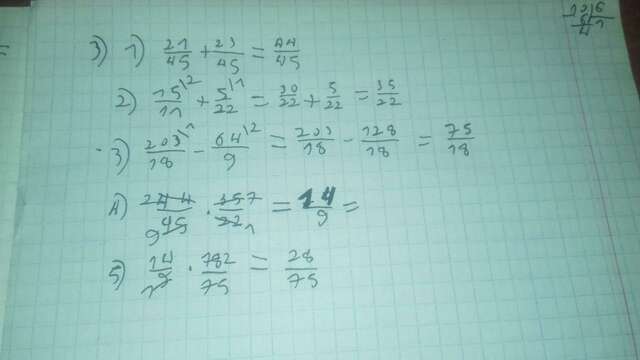 3) 1) 21/45 + 23/45 = 44/45
2) 15\2/11 + 5\1/22 = 30/22 + 5/22 = 35/22
3) 203\1/18 - 64\2/9 = 203/18 - 128/18 = 75/18
4) = 14/9 =
5) 14/9 · 182/75 = 28/75